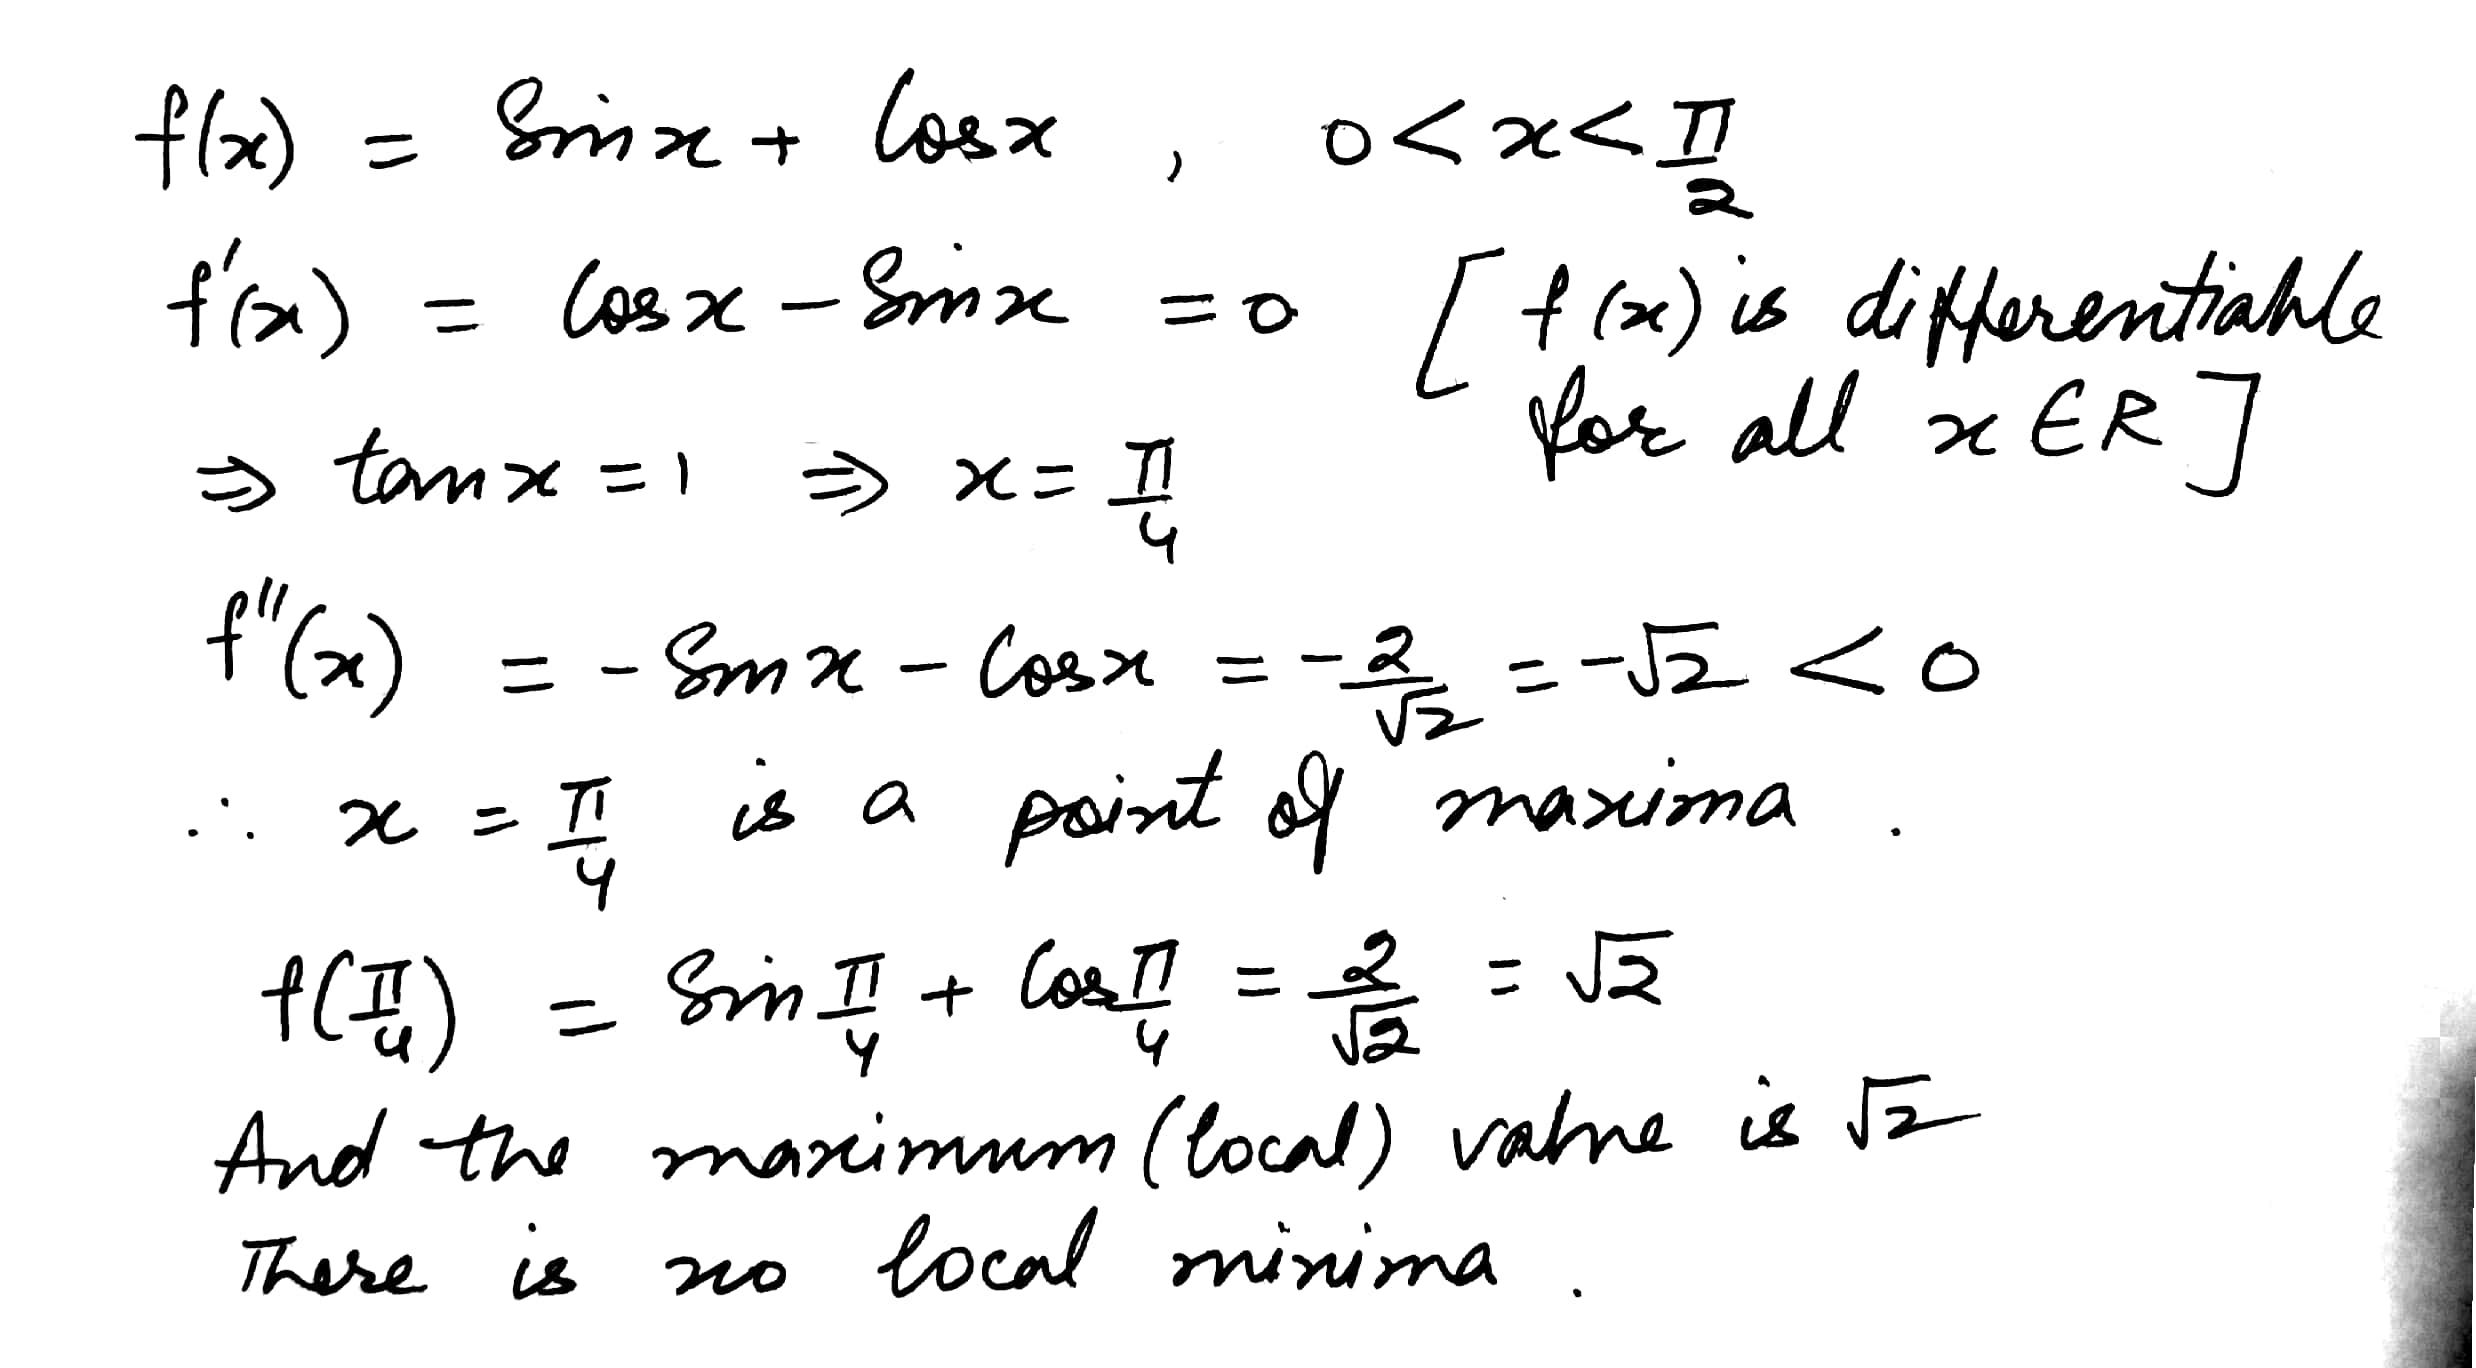 f(x) = Sin x + Cos x , 0 < x < π/2
f'(x) = Cos x - Sin x = 0 [ f(x) is differentiable
for all x ∈ R ]
⇒ tan x = 1 ⇒ x = π/4
f''(x) = - Sin x - Cos x = - 2/√2 = - √2 < 0
∴ x = π/4 is a point of maxima .
f(π/4) = Sin π/4 + Cos π/4 = 2/√2 = √2
And the maximum (local) value is √2
There is no local minima .